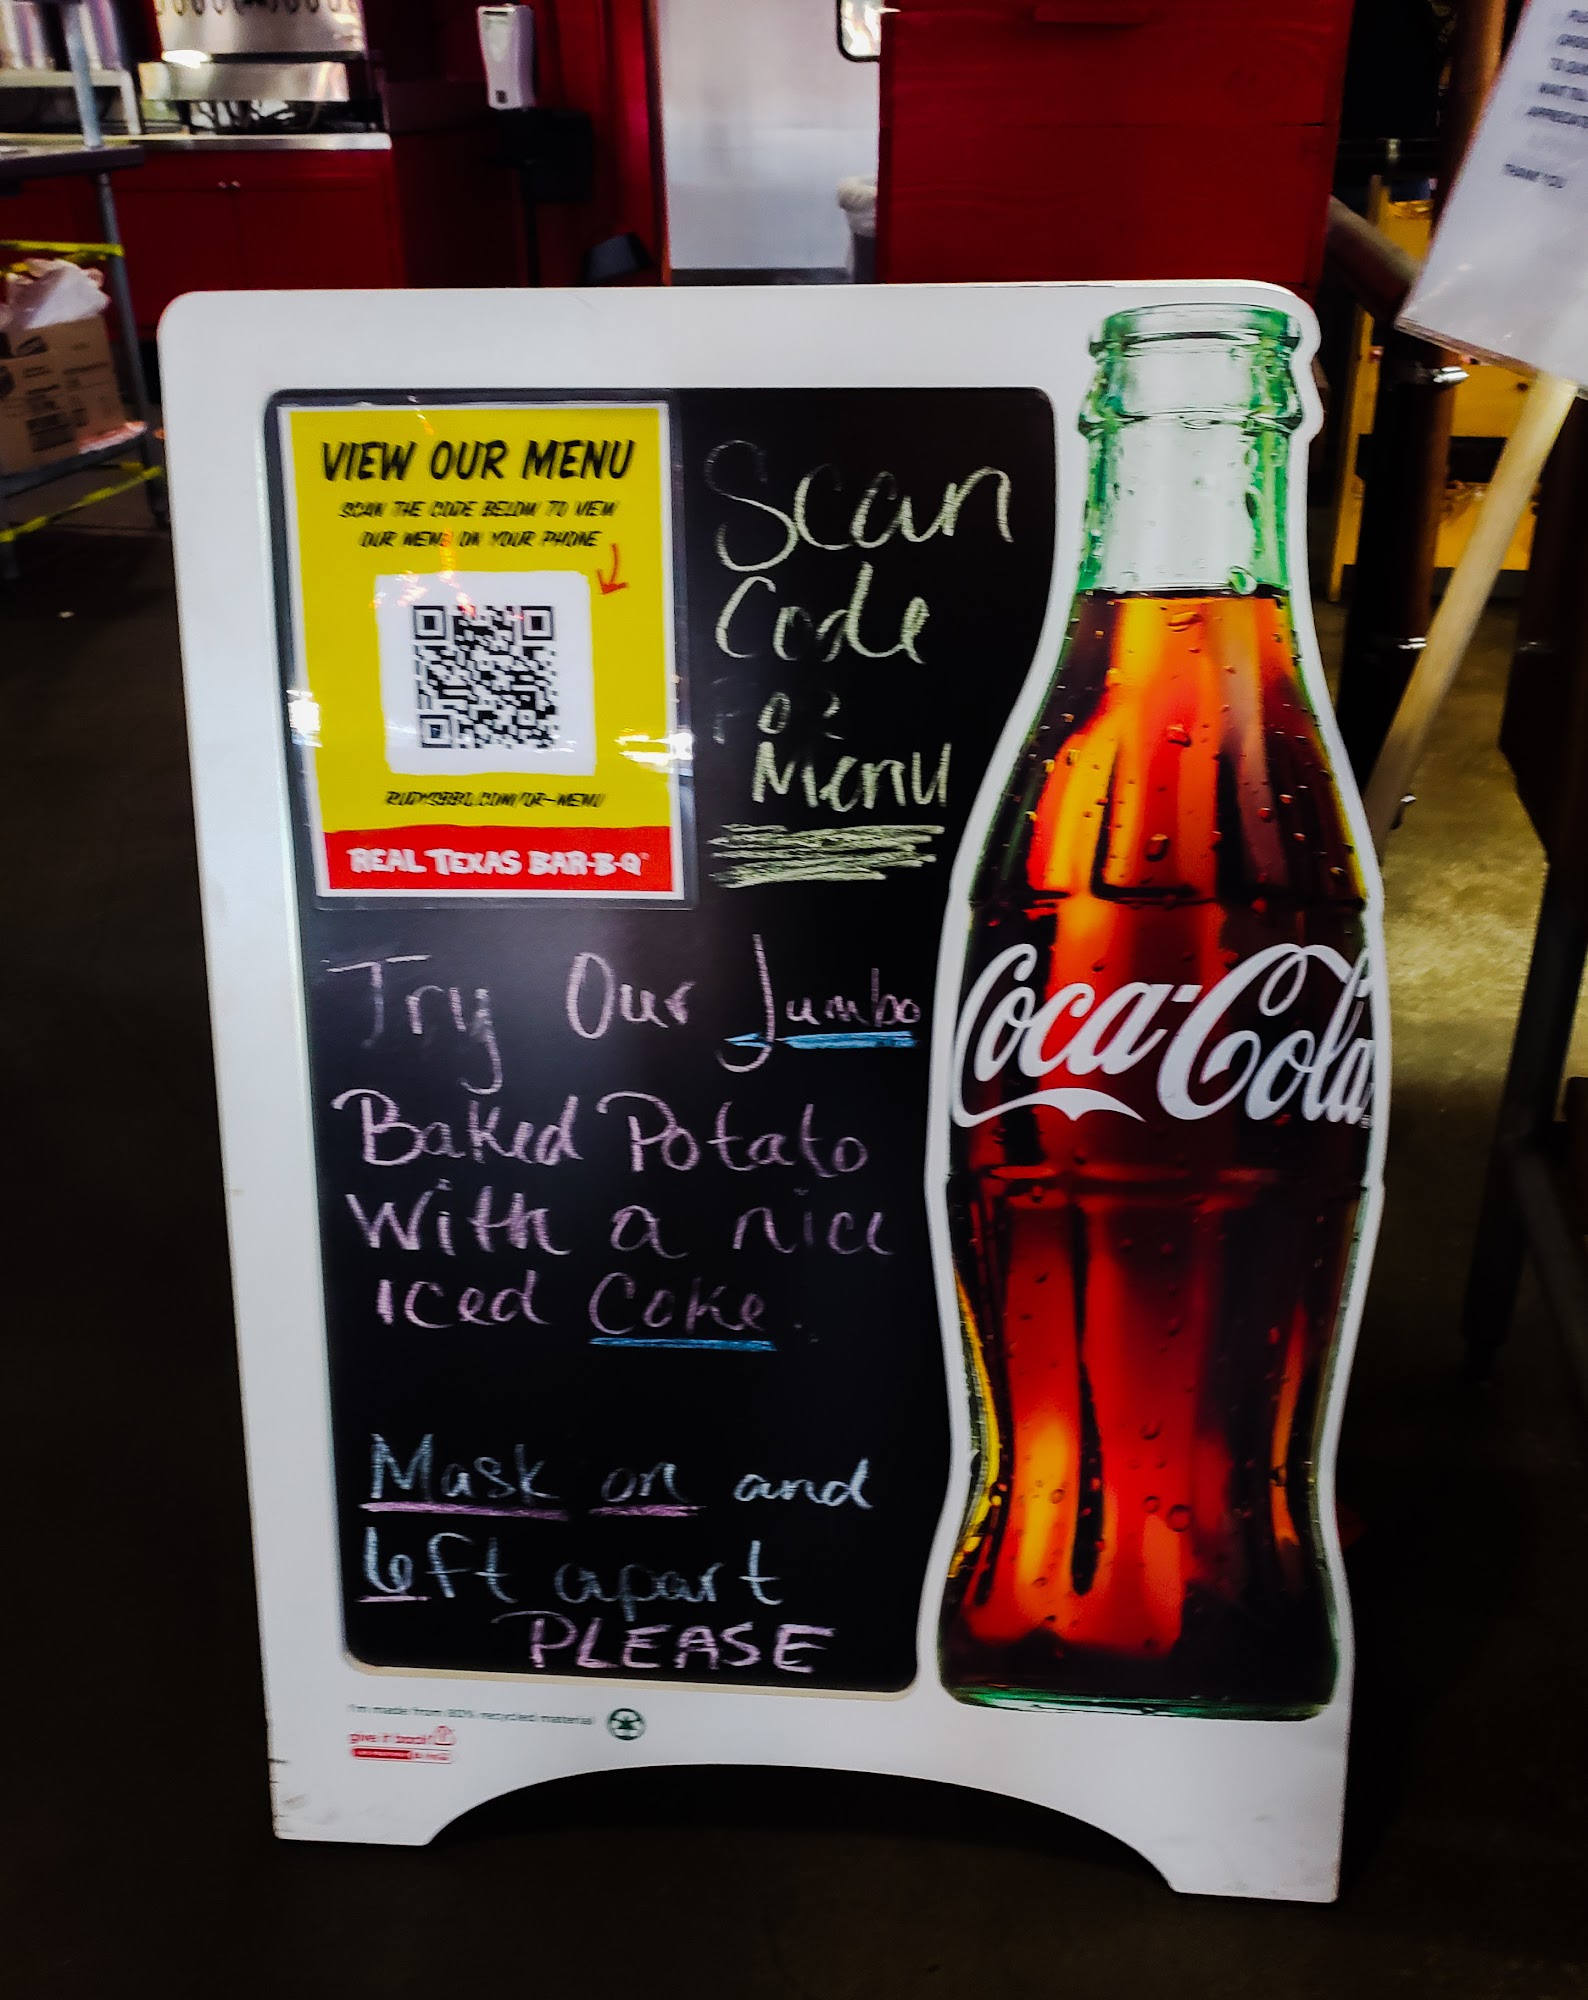 VIEW OUR MENU
SCAN THE CODE BELOW TO VIEW
OUR MENU ON YOUR PHONE
RUDYSBBQ.COM/QR-MENU
REAL TEXAS BAR-B-Q
Scan
Code
FOR
Menu
Try Our Jumbo
Baked Potato
With a nice
Iced Coke.
Mask on and
6ft apart
PLEASE
Coca-Cola
I'm made from 80% recycled material
give it back!
THANK YOU